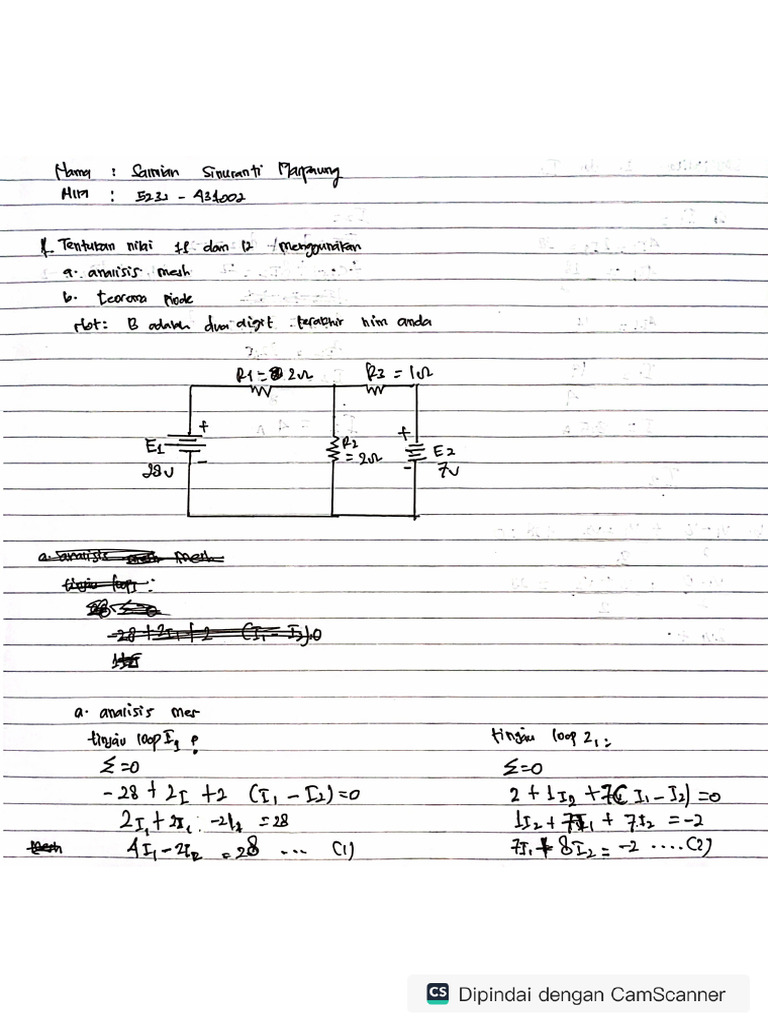 Nama : Saimian Sinuranti Marpaung
NIM : 5232-431002
1. Tentukan nilai I1 dan I2 menggunakan
a. analisis mesh
b. teorema node
Not: B adalah dua digit terakhir nim anda
R1 = 2Ω R3 = 1Ω
+ +
E1 R2 E2
- = 2Ω -
28v 7v
a. analisis mesh
tinjau loop :
-28 + 2I₁ + 2 (I₁ - I₂)=0
a. analisis mes
tinjau loop I₁ :
Σ =0
- 28 + 2I +2 (I₁ - I₂) =0
2I₁ + 2I₁ - 2I₂ = 28
mesh 4I₁ - 2I₂ = 28 .... (1)
tinjau loop 2, :
Σ=0
2 + 1I₂ + 7( I₁ - I₂) = 0
1I₂ + 7I₁ + 7I₂ = -2
7I₁ + 8I₂ = -2 .... (2)
CS Dipindai dengan CamScanner